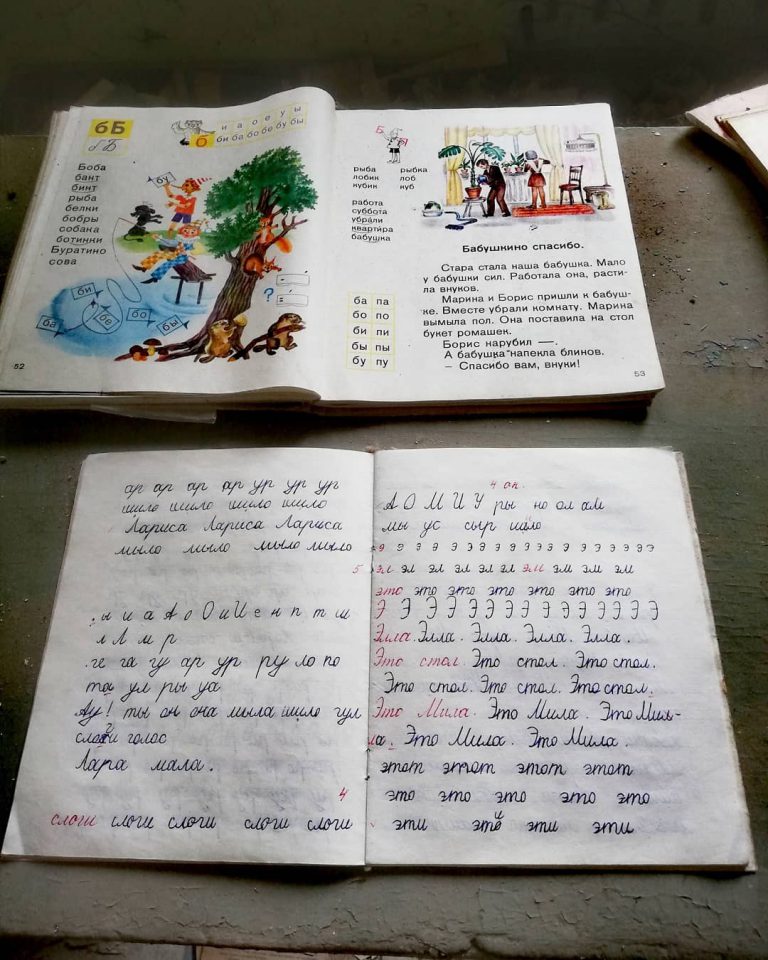 бБ
и а о е у ы
б
би ба бо бе бу бы
Боба
бант
бинт
рыба
белки
бобры
собака
ботинки
Буратино
сова
бу
би
ба
бе
бо
бы
?
52
Б Я
рыба рыбка
лобик лоб
кубик куб
работа
суббота
убрали
квартира
бабушка
ба па
бо по
би пи
бы пы
бу пу
Бабушкино спасибо.
Стара стала наша бабушка. Мало
у бабушки сил. Работала она, расти-
ла внуков.
Марина и Борис пришли к бабуш-
ке. Вместе убрали комнату. Марина
вымыла пол. Она поставила на стол
букет ромашек.
Борис нарубил —.
А бабушка напекла блинов.
– Спасибо вам, внуки!
53
ар ар ар ар ур ур ур
шило шило шило шило
Лариса Лариса Лариса
мыло мыло мыло мыло
5
ы и а А о О и И е н п т ш
л Л м р
ге га гу ар ур ру ло по
та ул ры уа
Ау! ты он она мыла шило гул
слоги голос
Лара мала.
4
слоги слоги слоги слоги слоги
4 ан.
А О М И У ры но ол ам
мы ус сыр шило
э э э э э э э э э э э э э э э э э э э
эл эл эл эл эл эл эм эм эм эм
это это это это это это это
Э Э Э Э Э Э Э Э Э Э Э Э Э Э Э
Элла. Элла. Элла. Элла. Элла.
Это стол. Это стол. Это стол.
Это стол. Это стол. Это стол.
Это Мила. Это Мила. Это Ми-
ла. Это Мила. Это Мила.
этот этот этот этот
это это это это это
эти эти эти эти